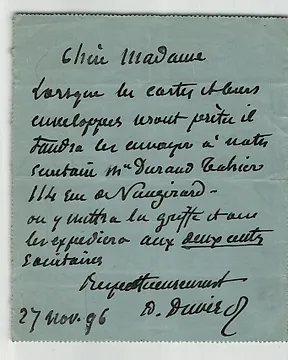 Chère Madame
Lorsque les cartes et leurs
enveloppes seront prêtes il
faudra les envoyer à notre
secrétaire Mr Durand Tahier
114 rue de Vaugirard -
on y mettra la griffe et on
les expédiera aux deux cents
sociétaires
Respectueusement
27 nov. 96